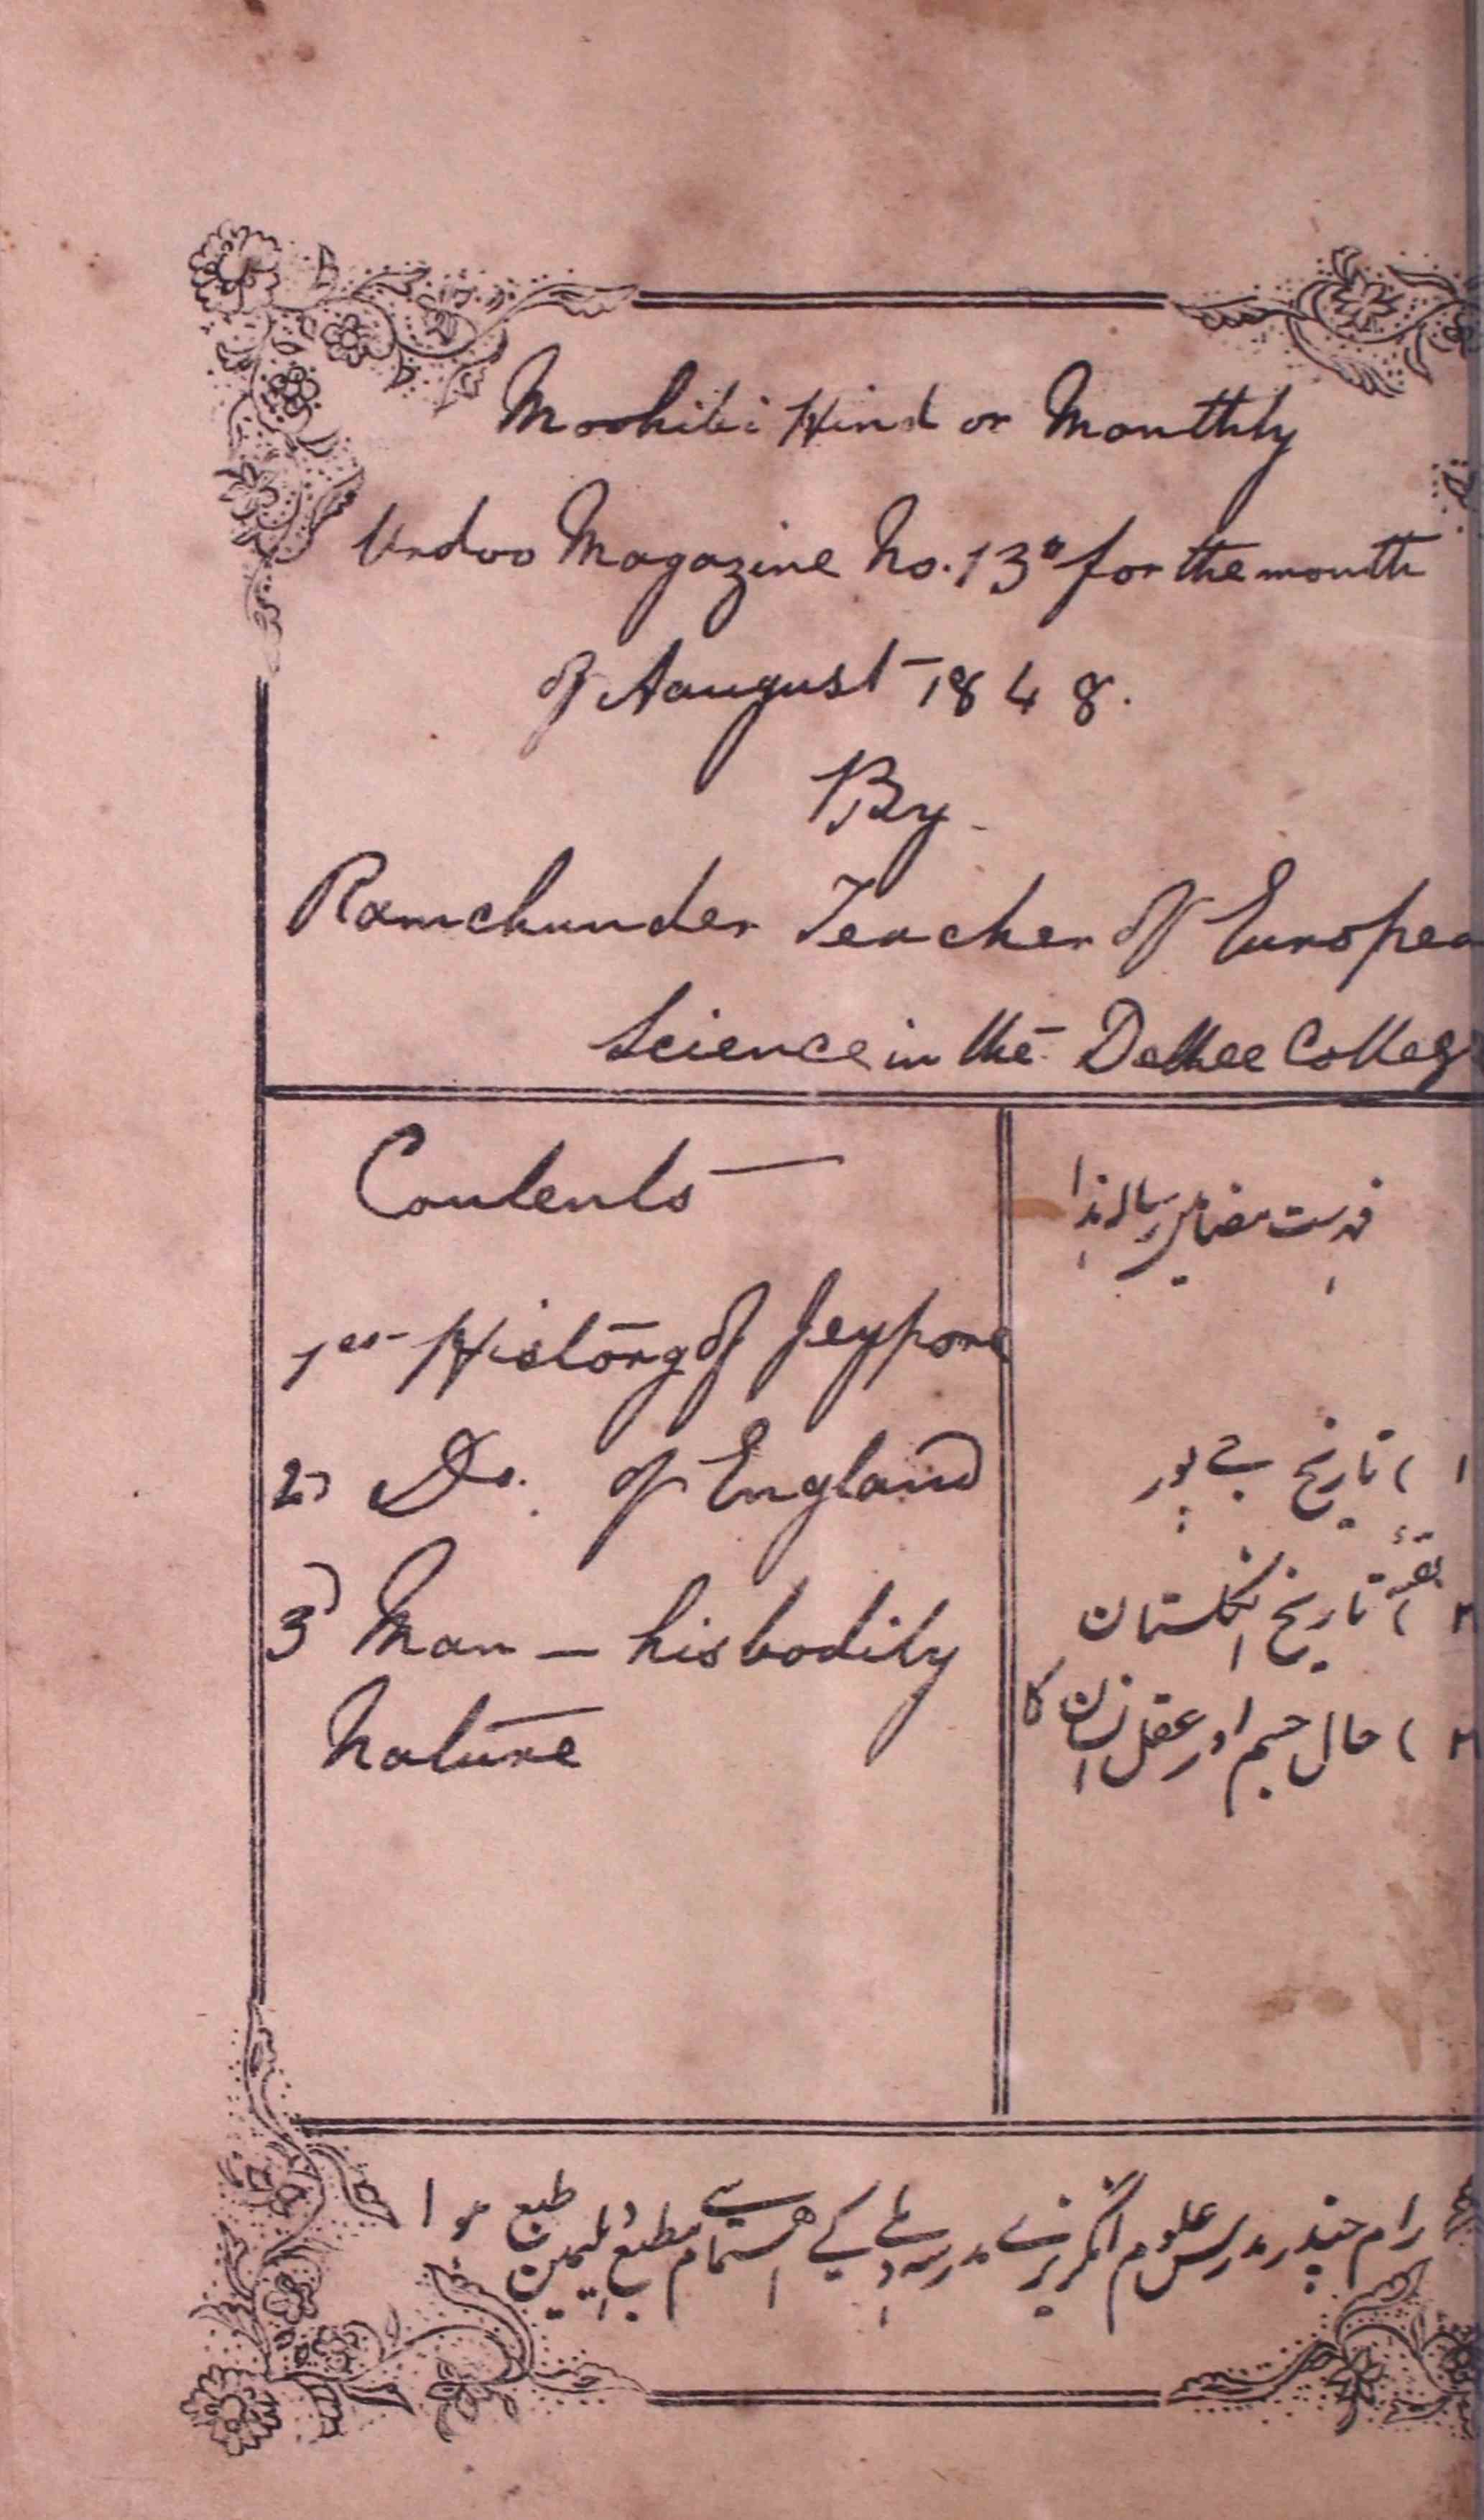 Moohibi Hind or Monthly
Urdoo Magazine No. 13 for the month
of Aaugust 1848.
By
Ramchunder Teacher of Europea
Science in the Delhee Colleg
Contents
1 History of Jeypore
2) Do. of England
3) Man — his bodily
Nature
فہرست مضامین رسالہ ہذا
۱) تاریخ جے پور
۲) بقیہ تاریخ انگلستان
۳) حال جسم اور عقل انسان کا
رام چندر مدرس علوم انگریزی مدرسہ دہلی کے اہتمام سے مطبع میں طبع ہوا